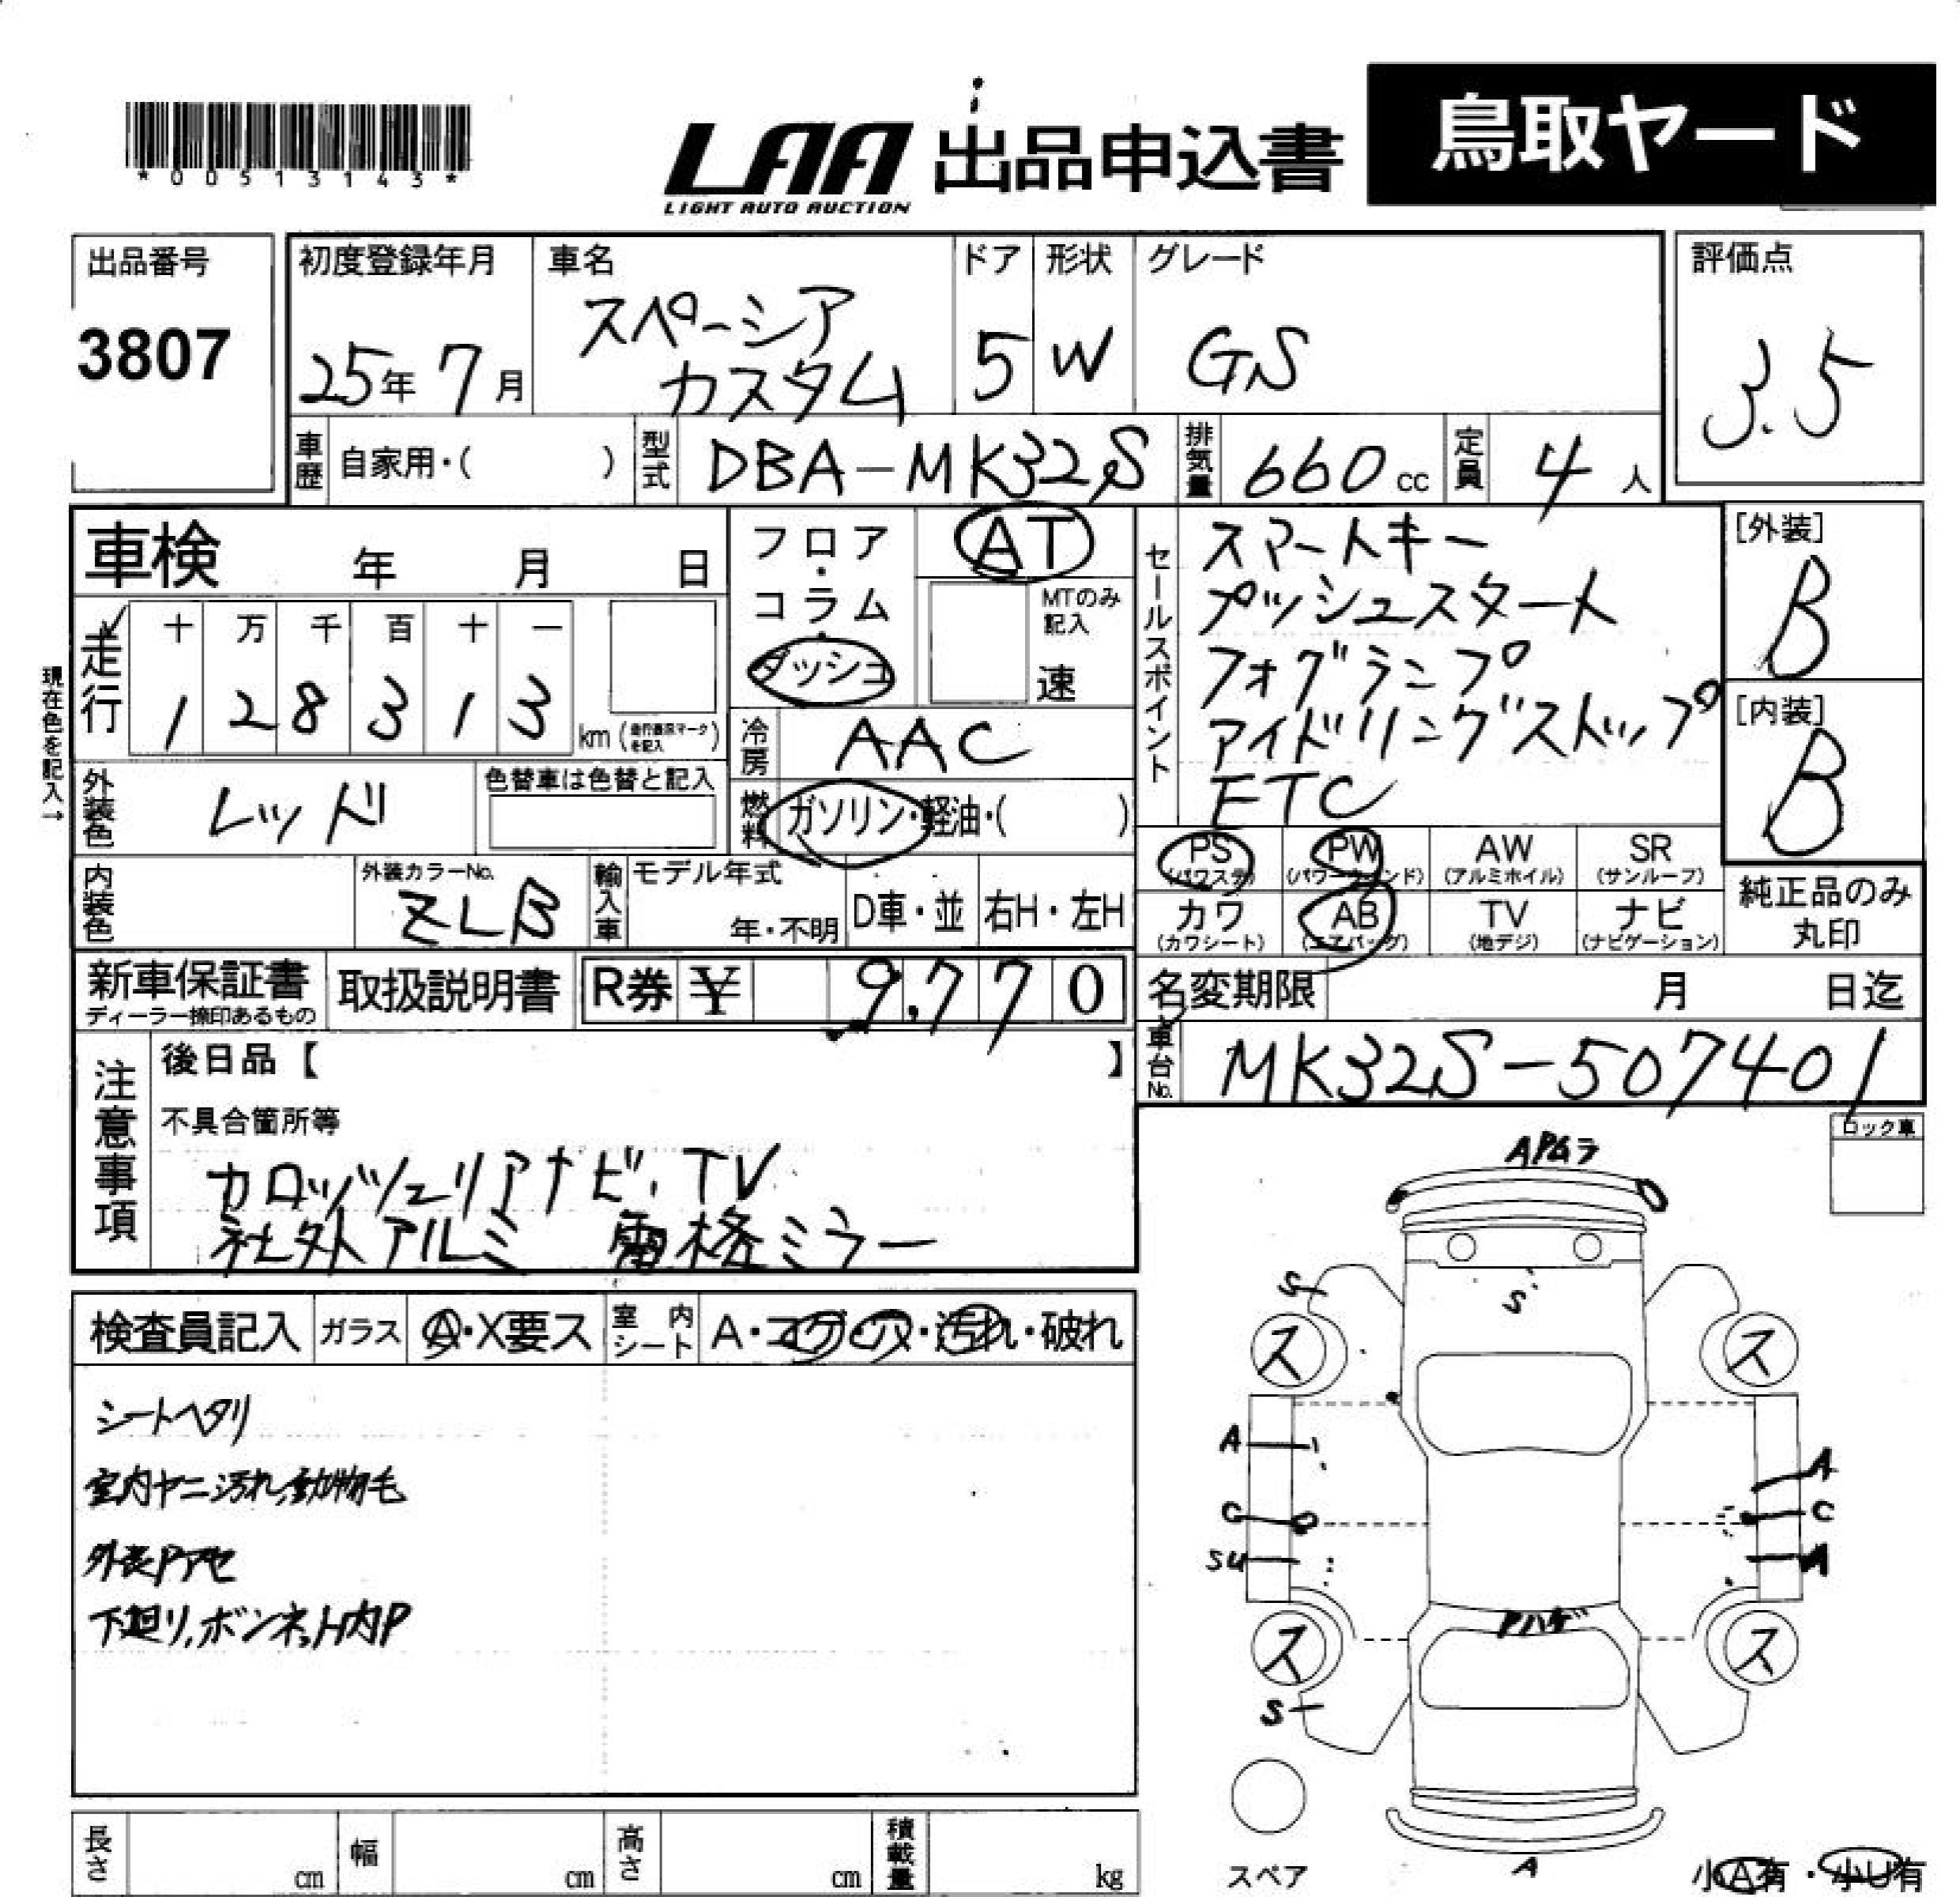 *00513143*
LAA 出品申込書 鳥取ヤード
LIGHT AUTO AUCTION
出品番号 3807
初度登録年月 25年 7月
車名 スペーシア
カスタム
ドア 5
形状 W
グレード GS
評価点 3.5
車歴 自家用・( )
型式 DBA-MK32S
排気量 660 cc
定員 4 人
車検 年 月 日
現在色を記入→
走行 十 万 千 百 十 一
1 2 8 3 1 3 km
フロア・
コラム・
ダッシュ
AT
MTのみ
記入
速
冷房 AAC
燃料 ガソリン・軽油・( )
外装色 レッド
色替車は色替と記入
内装色
外装カラーNo. ZLB
輸入車 モデル年式
年・不明
D車・並
右H・左H
セールスポイント
スマートキー
プッシュスタート
フォグランプ
アイドリングストップ
ETC
[外装]
B
[内装]
B
PS PW AW SR
(パワステ) (パワーウィンド) (アルミホイル) (サンルーフ)
カワ AB TV ナビ
(カワシート) (エアバッグ) (地デジ) (ナビゲーション)
純正品のみ
丸印
新車保証書
ディーラー捺印あるもの
取扱説明書
R券 ¥ 9,770
名変期限 月 日迄
車台No. MK32S-507401
注意事項
後日品【 】
不具合箇所等
カロッツェリアナビ、TV
社外アルミ 電格ミラー
ロック車
検査員記入 ガラス A・X要ス
室内シート A・コゲ・穴・汚れ・破れ
シートヘタリ
室内ヤニ汚れ、動物毛
外装Pアセ
下廻り、ボンネット内P
S
S
ス
ス
A
A
C
C
SU
A
Pハゲ
ス
ス
S
スペア
A
小A有・小U有
長さ cm
幅 cm
高さ cm
積載量 kg